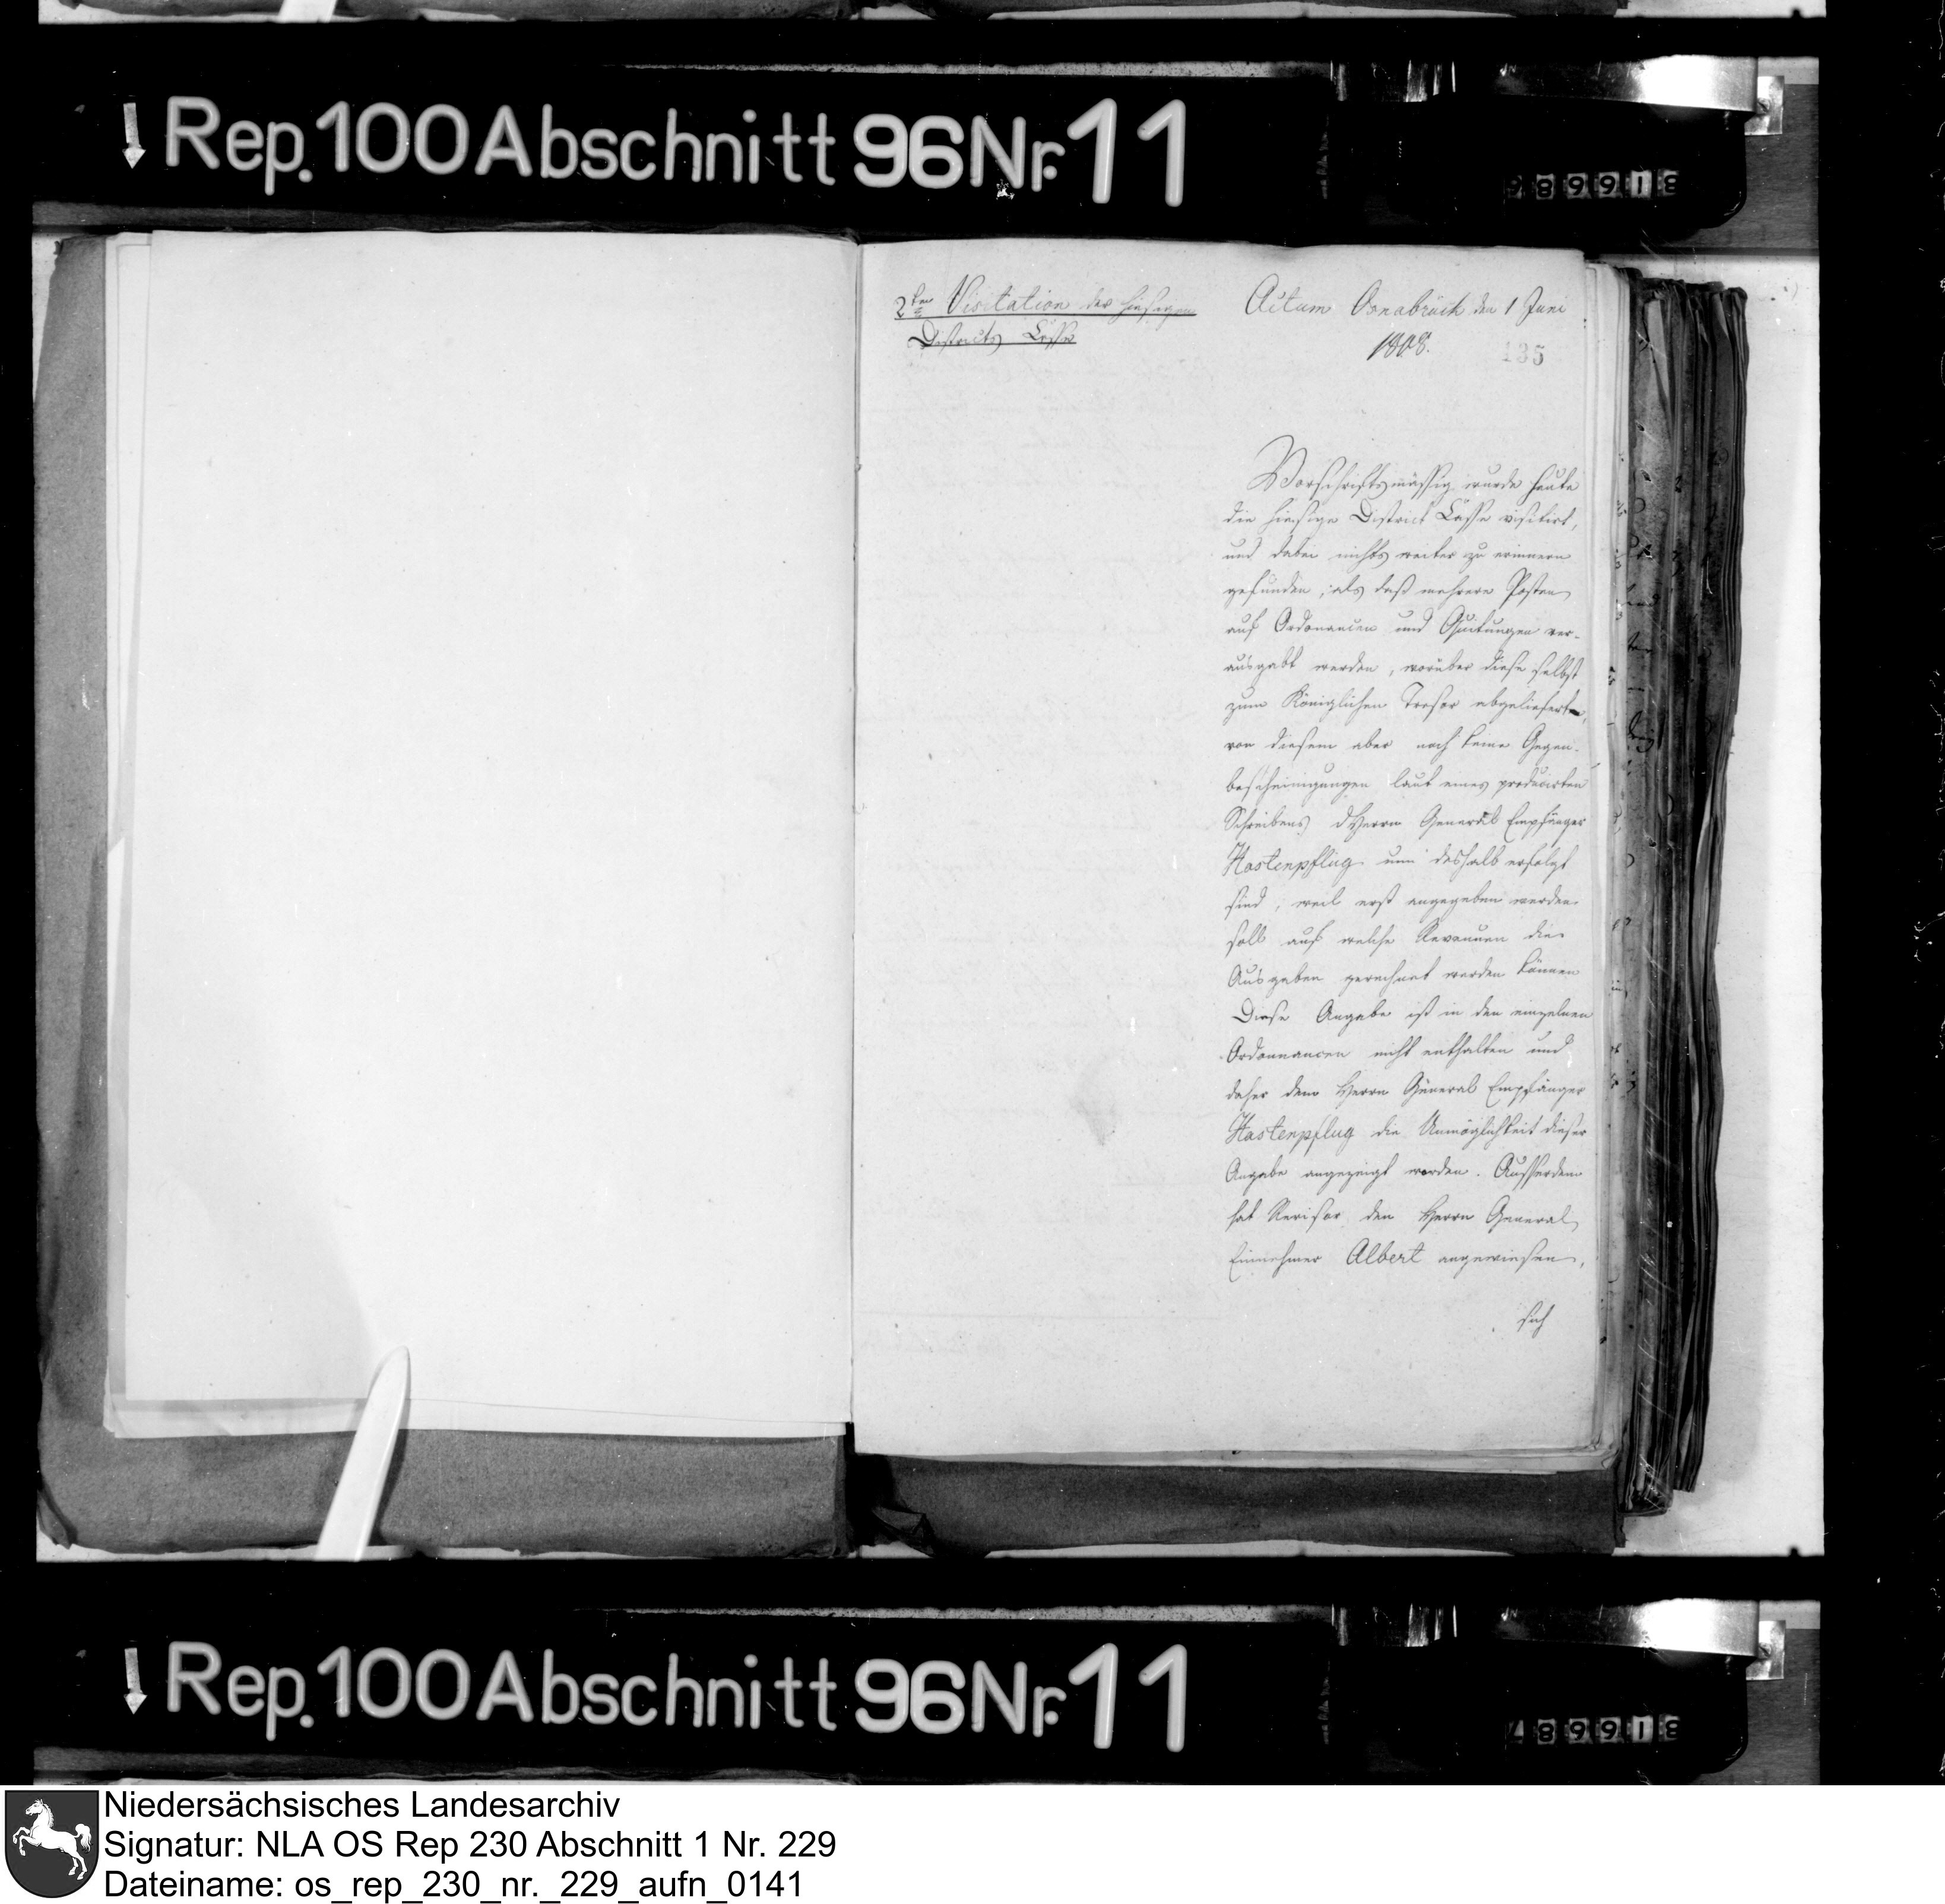 Rep. 100 Abschnitt 96 Nr. 11
316686
2te Visitation der hiesigen
Districts Casse
Actum Osnabrück den 1 Juni
1808.
135
Vorschriftsmässig wurde heute
die hiesige District Casse visitirt,
und dabei nichts weiter zu erinnern
gefunden, als daß mehrere Posten
auf Ordonancen und Quitungen ver-
ausgabt werden, worüber diese selbst
zum Königlichen Tresor abgeliefert,
von diesem aber noch keine Gegen-
bescheinigungen laut eines producirten
Schreibens d Herrn General Empfänger
Hastenpflug nun deshalb erfolgt
sind, weil erst angegeben werden
soll auf welche Revenuen die
Ausgaben gerechnet werden können
Diese Angabe ist in den einzelnen
Ordonnancen nicht enthalten und
daher dem Herrn General Empfänger
Hastenpflug die Unmöglichkeit dieser
Angabe angezeigt worden. Ausserdem
hat Revisor den Herrn General
Einnehmer Albert angewiesen,
sich
Rep. 100 Abschnitt 96 Nr. 11
316687
Niedersächsisches Landesarchiv
Signatur: NLA OS Rep 230 Abschnitt 1 Nr. 229
Dateiname: os_rep_230_nr._229_aufn_0141